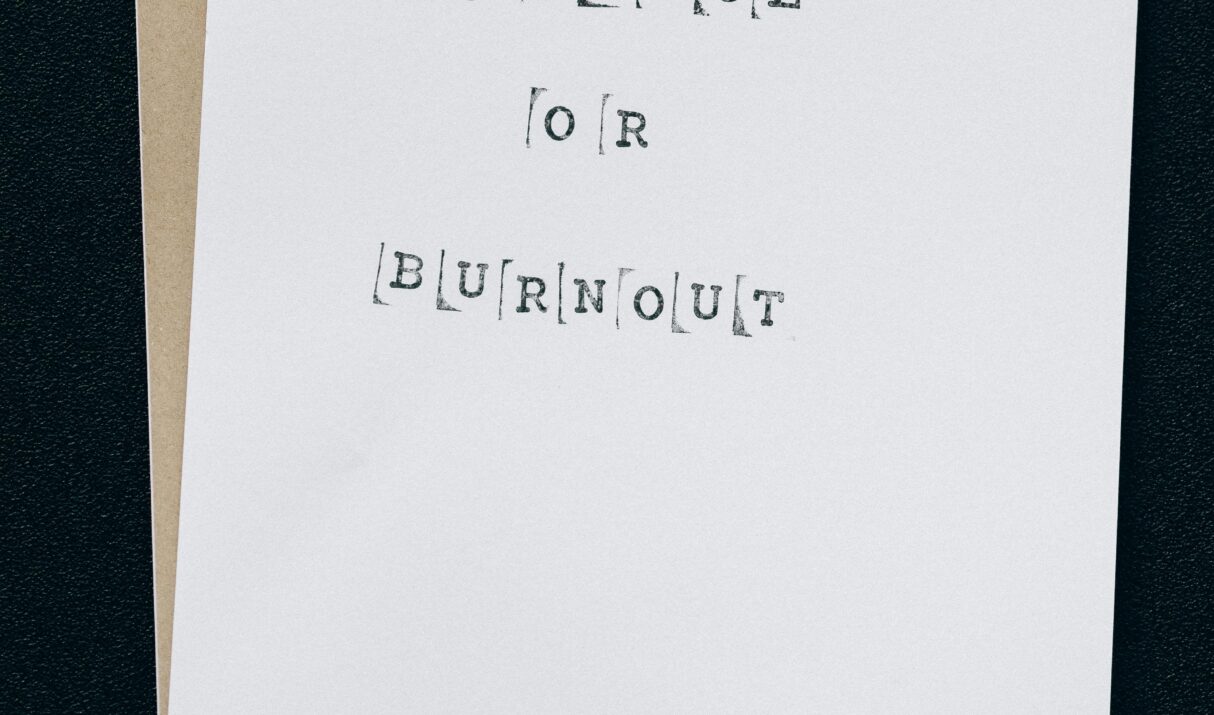 OR
BURNOUT